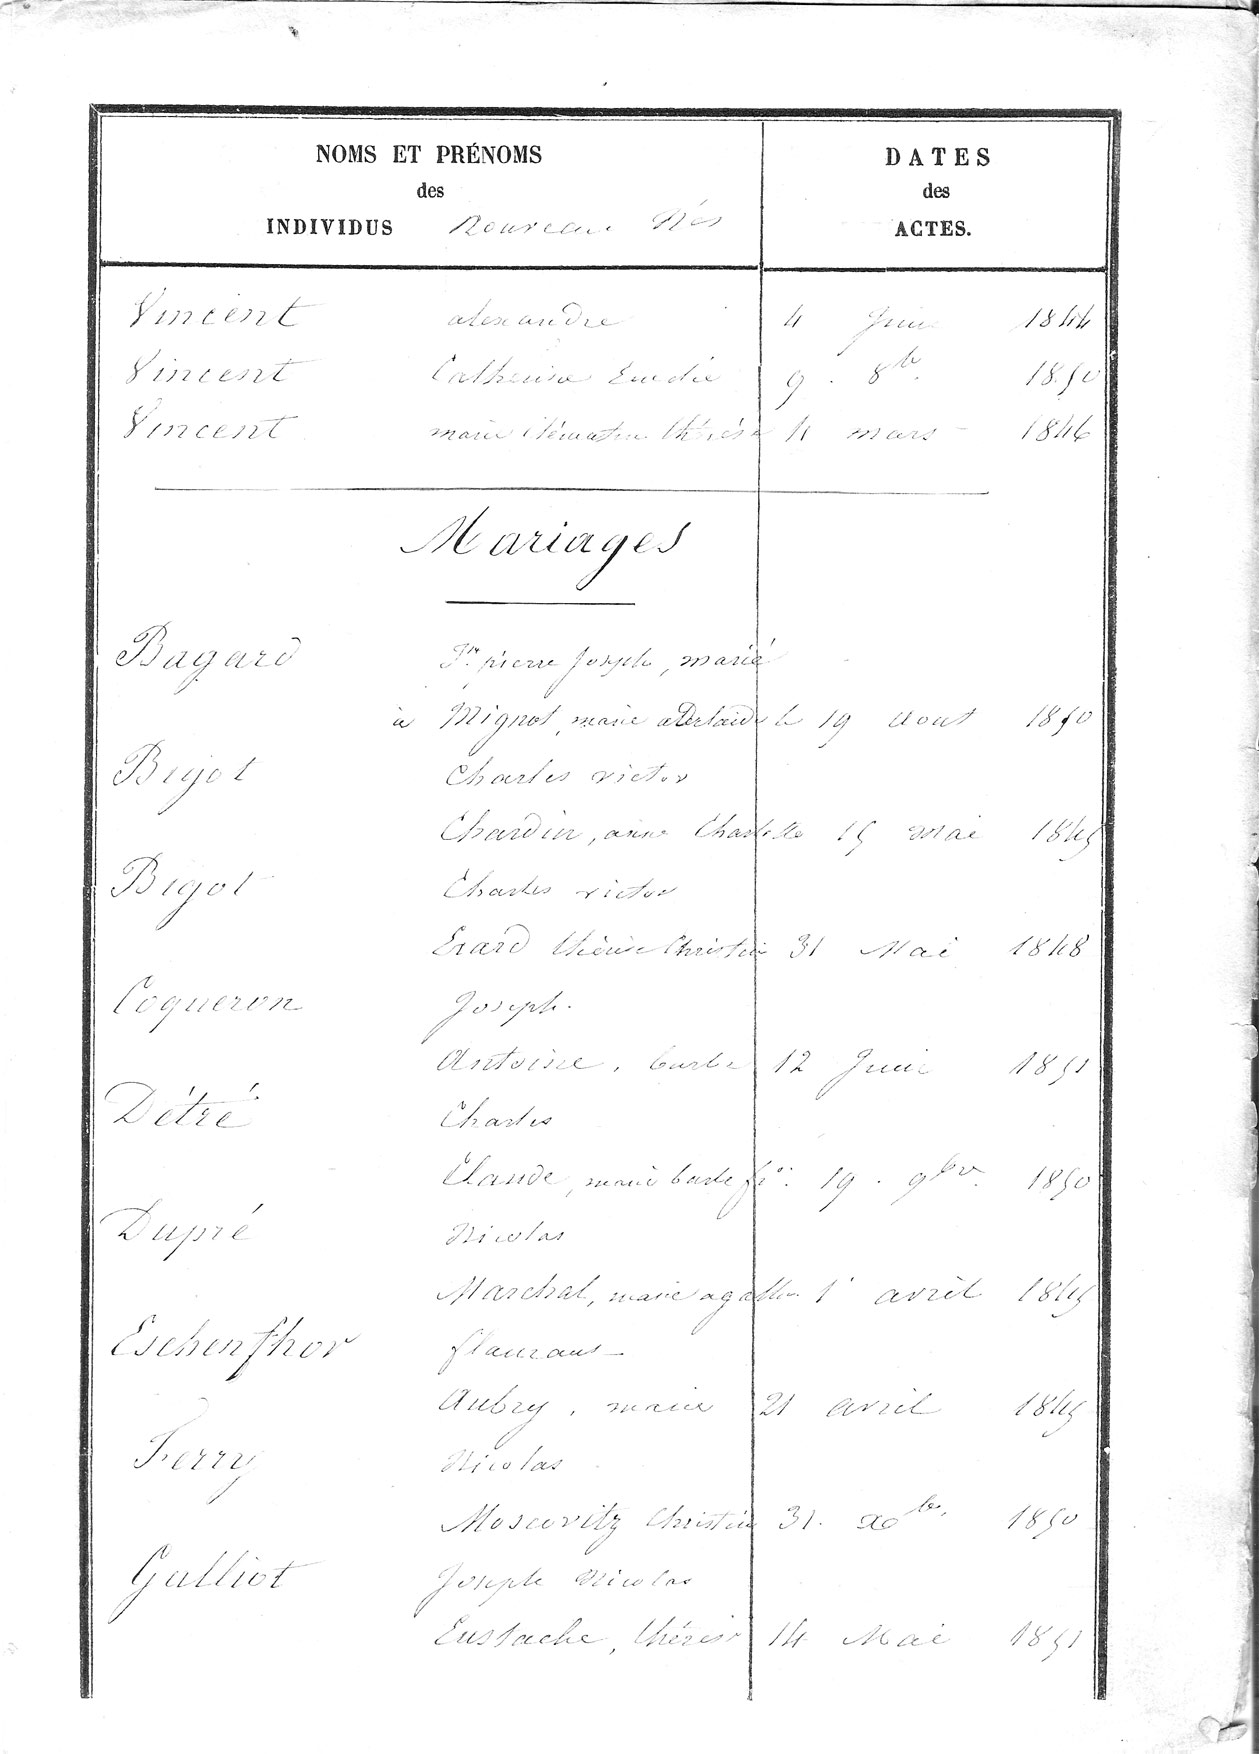 NOMS ET PRÉNOMS DATES
des des
INDIVIDUS Nouveau Nés ACTES.
Vincent alexandre 4 Juin 1844
Vincent Catherine Emelie 9. 8bre 1850
Vincent marie Clémentine thérèse 4 mars 1846
Mariages
Bagard Jn pierre Joseph, marié
à Mignot, marie adelaide le 19 Aout 1850
Bijot Charles victor
Chardin, anne Charlotte 15 Mai 1845
Bigot Charles victor
Erard thérèse Christine 31 Mai 1848
Coqueron Joseph.
Antoine, barbe 12 Juin 1851
Détré Charles
Claude, marie barbe fse 19. 9bre 1850
Dupré Nicolas
Marchal, marie agathe 1er avril 1845
Eschenfhor
Aubry, marie 21 avril 1845
Ferry Nicolas
Moscovitz Christine 31. xbre 1850
Galliot Joseph Nicolas
Eustache, thérèse 14 Mai 1851